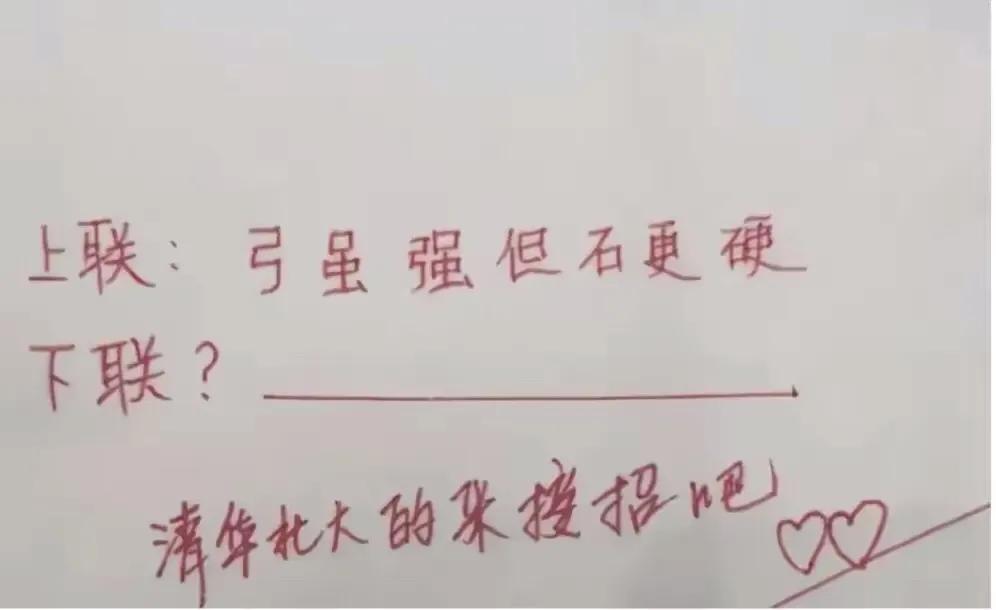 上联：弓虽强但石更硬
下联？
清华北大的来接招吧